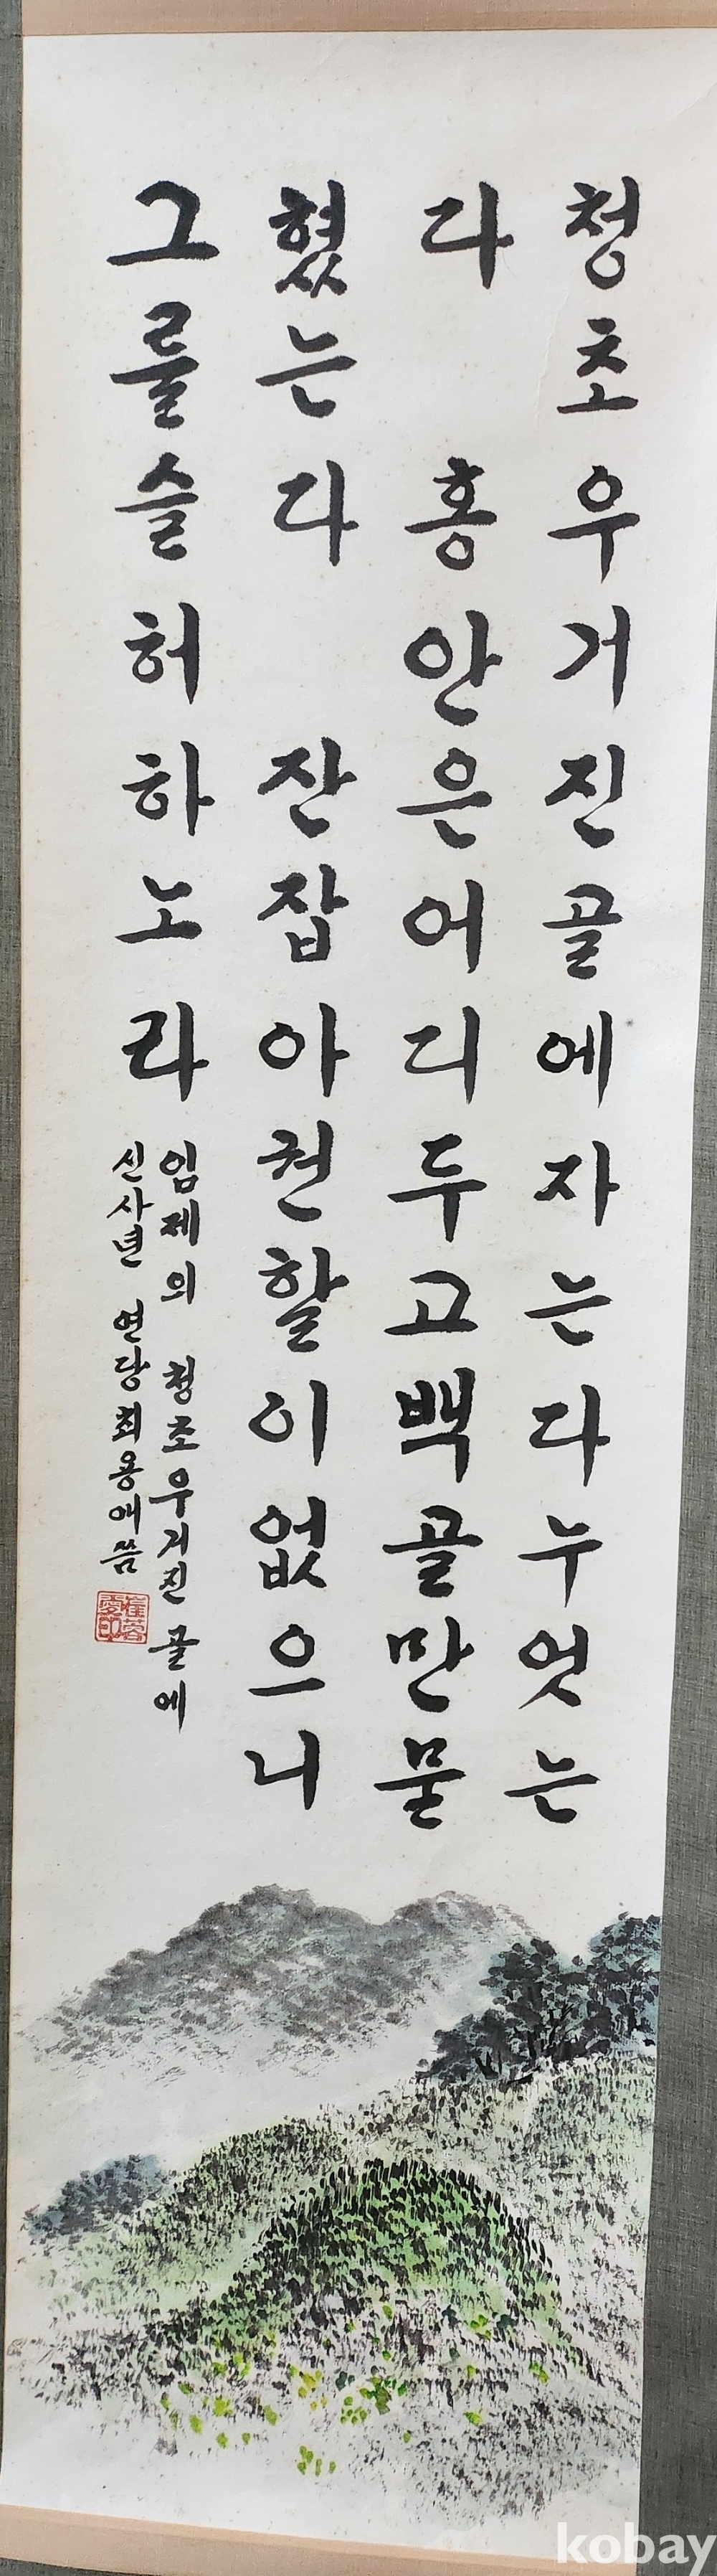 청초우거진골에자는다누엇는
다 홍안은어디두고백골만물
혔는다 잔잡아권할이없으니
그를슬허하노라
임제의 청초우거진골에
신사년 연당최용애씀
崔蓉愛印
kobay